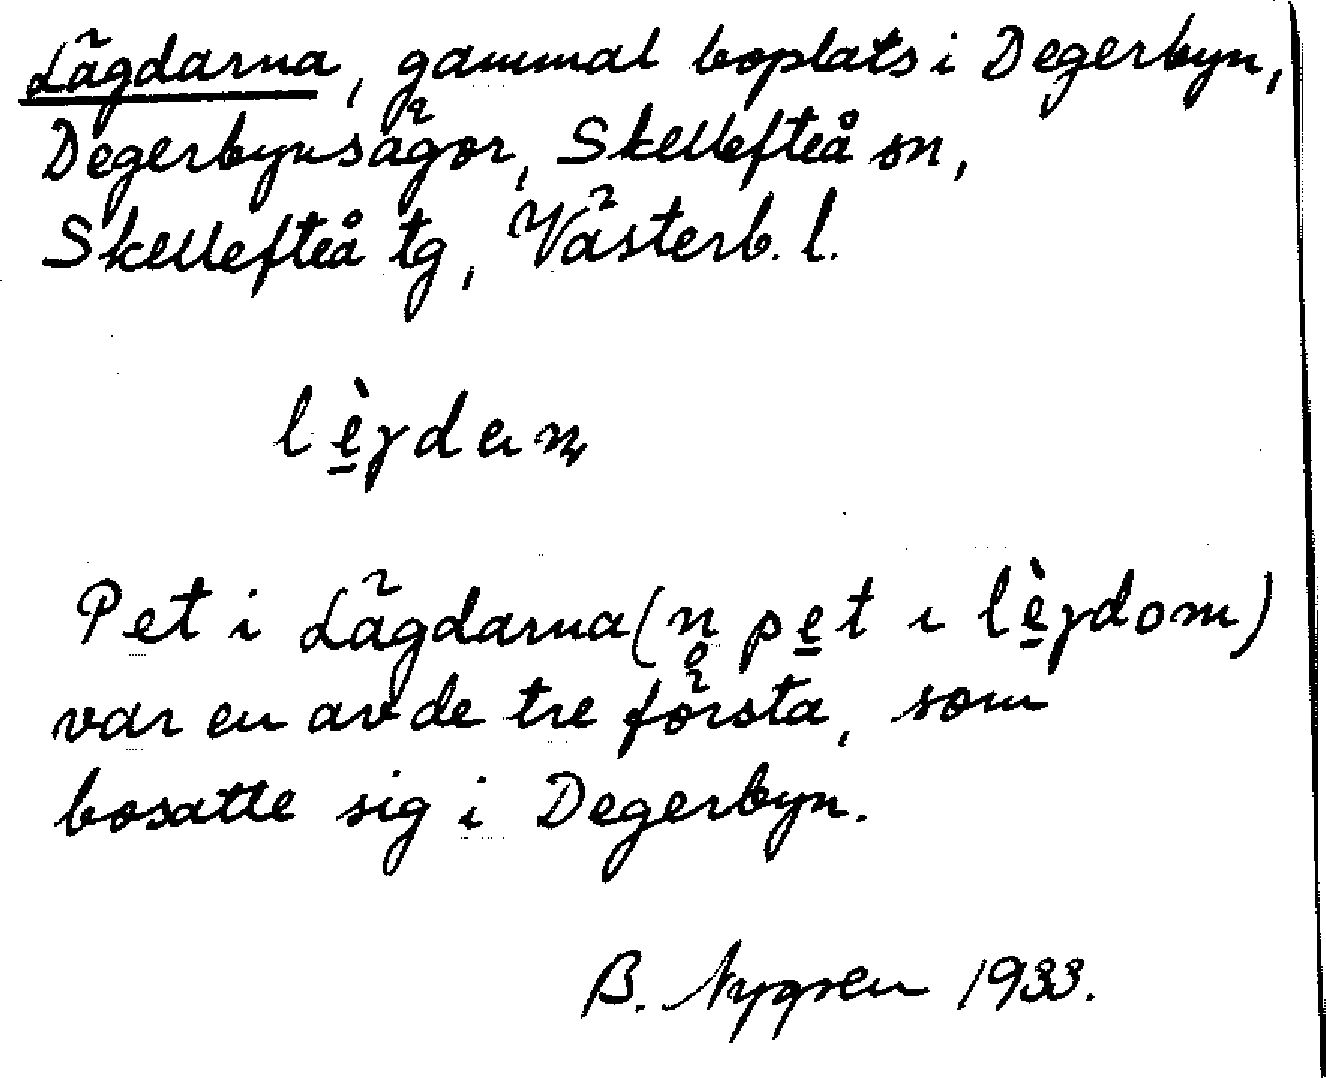 Lägdarna, gammal boplats i Degerbyn,
Degerbynsägor, Skellefteå sn,
Skellefteå tg, Västerb. l.
lè̠γdan
Pet i Lägdarna (n̥ pe̠t ɩ lè̠γdom)
var en av de tre första, som
bosatte sig i Degerbyn.
B. Nygren 1933.